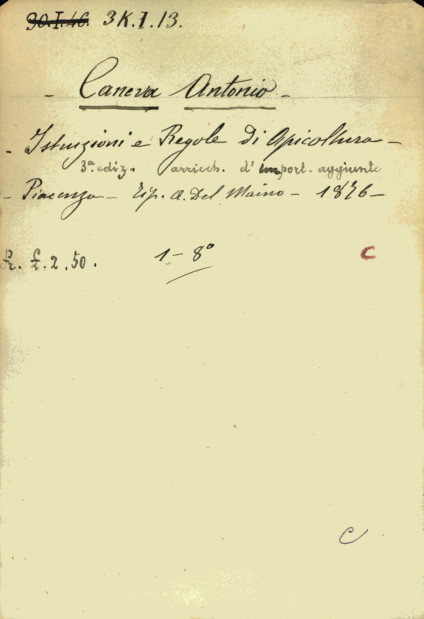 30.I.46. 3K.I.13.
- Caneva Antonio -
- Istruzioni e Regole di Apicoltura -
3ª ediz. arricch. d' import. aggiunte
- Piacenza - Tip. A. Del Maino - 1876 -
£. £. 2.50. 1 - 8° C
C